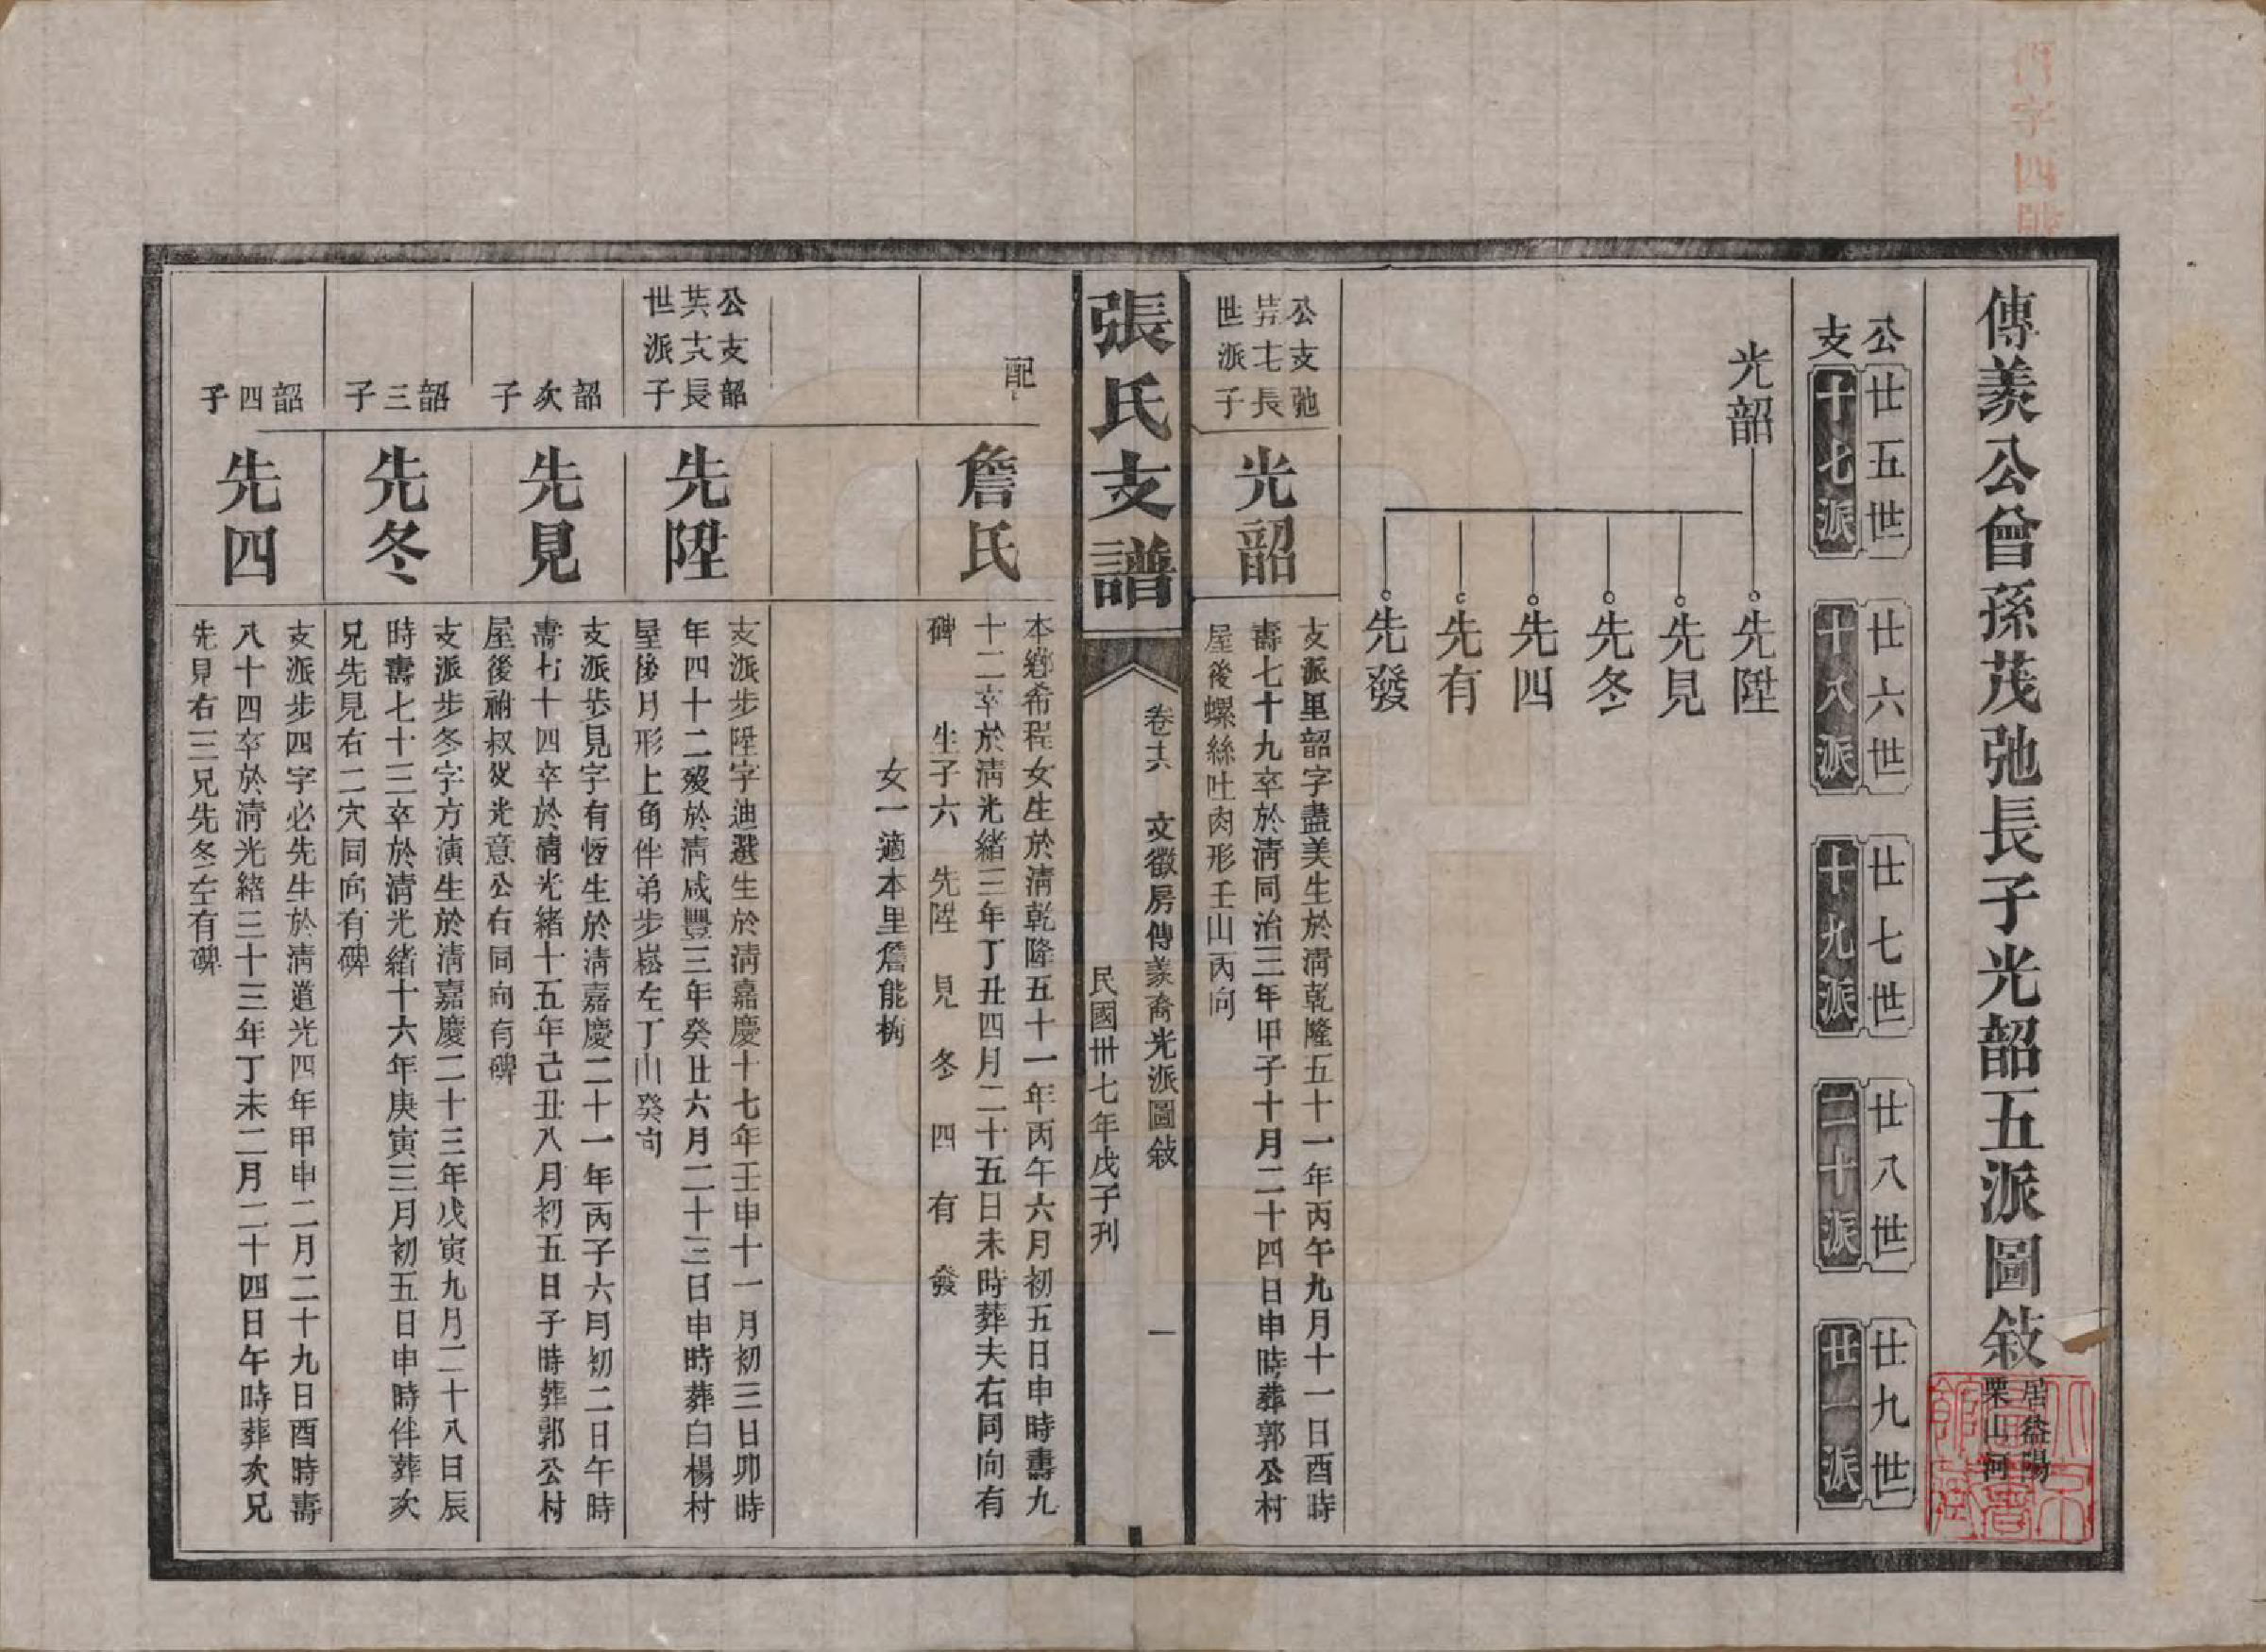 傳義公曾孫茂弛長子光韶五派圖敍
居益陽
栗山河
公 廿五世 廿六世 廿七世 廿八世 廿九世
支 十七派 十八派 十九派 二十派 廿一派
光韶
先陞
先見
先冬
先四
先有
先發
公支弛
廿五十七長
世派子
光韶
支派里韶字盡美生於清乾隆五十一年丙午九月十一日酉時
壽七十九卒於清同治三年甲子十月二十四日申時葬郭公村
屋後螺絲吐肉形壬山丙向
張氏支譜
卷十六 文徽房傳義裔光派圖敍 一
民國卅七年戊子刊
配
詹氏
本鄉希程女生於清乾隆五十一年丙午六月初五日申時壽九
十二卒於清光緒三年丁丑四月二十五日未時葬夫右同向有
碑 生子六 先陞 見 冬 四 有 發
女一適本里詹能梅
公支韶
廿六十八長
世派子
先陞
支派步陞字迪選生於清嘉慶十七年壬申十一月初三日卯時
年四十二歿於清咸豐三年癸丑六月二十三日申時葬白楊村
屋後月形上角伴弟步崧左丁山癸向
韶次子
先見
支派步見字有恆生於清嘉慶二十一年丙子六月初二日午時
壽七十四卒於清光緒十五年己丑八月初五日子時葬郭公村
屋後祔叔父光意公右同向有碑
韶三子
先冬
支派步冬字方演生於清嘉慶二十三年戊寅九月二十八日辰
時壽七十三卒於清光緒十六年庚寅三月初五日申時伴葬次
兄先見右二穴同向有碑
韶四子
先四
支派步四字必先生於清道光四年甲申二月二十九日酉時壽
八十四卒於清光緒三十三年丁未二月二十四日午時葬次兄
先見右三兄先冬左有碑